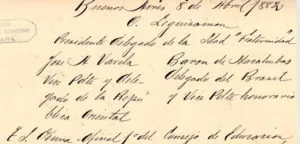 Buenos Aires 8 de Abril /883
O. Leguizamon
Presidente Delegado de la Idad "Fraternidad"
José M. Varela Baron de Macahubas
Vice Pdte y Dele- Delegado del Brasil
gado de la Repú y Vice Pdte honorario
blica Oriental
Oficial 1º del Consejo de Educacion